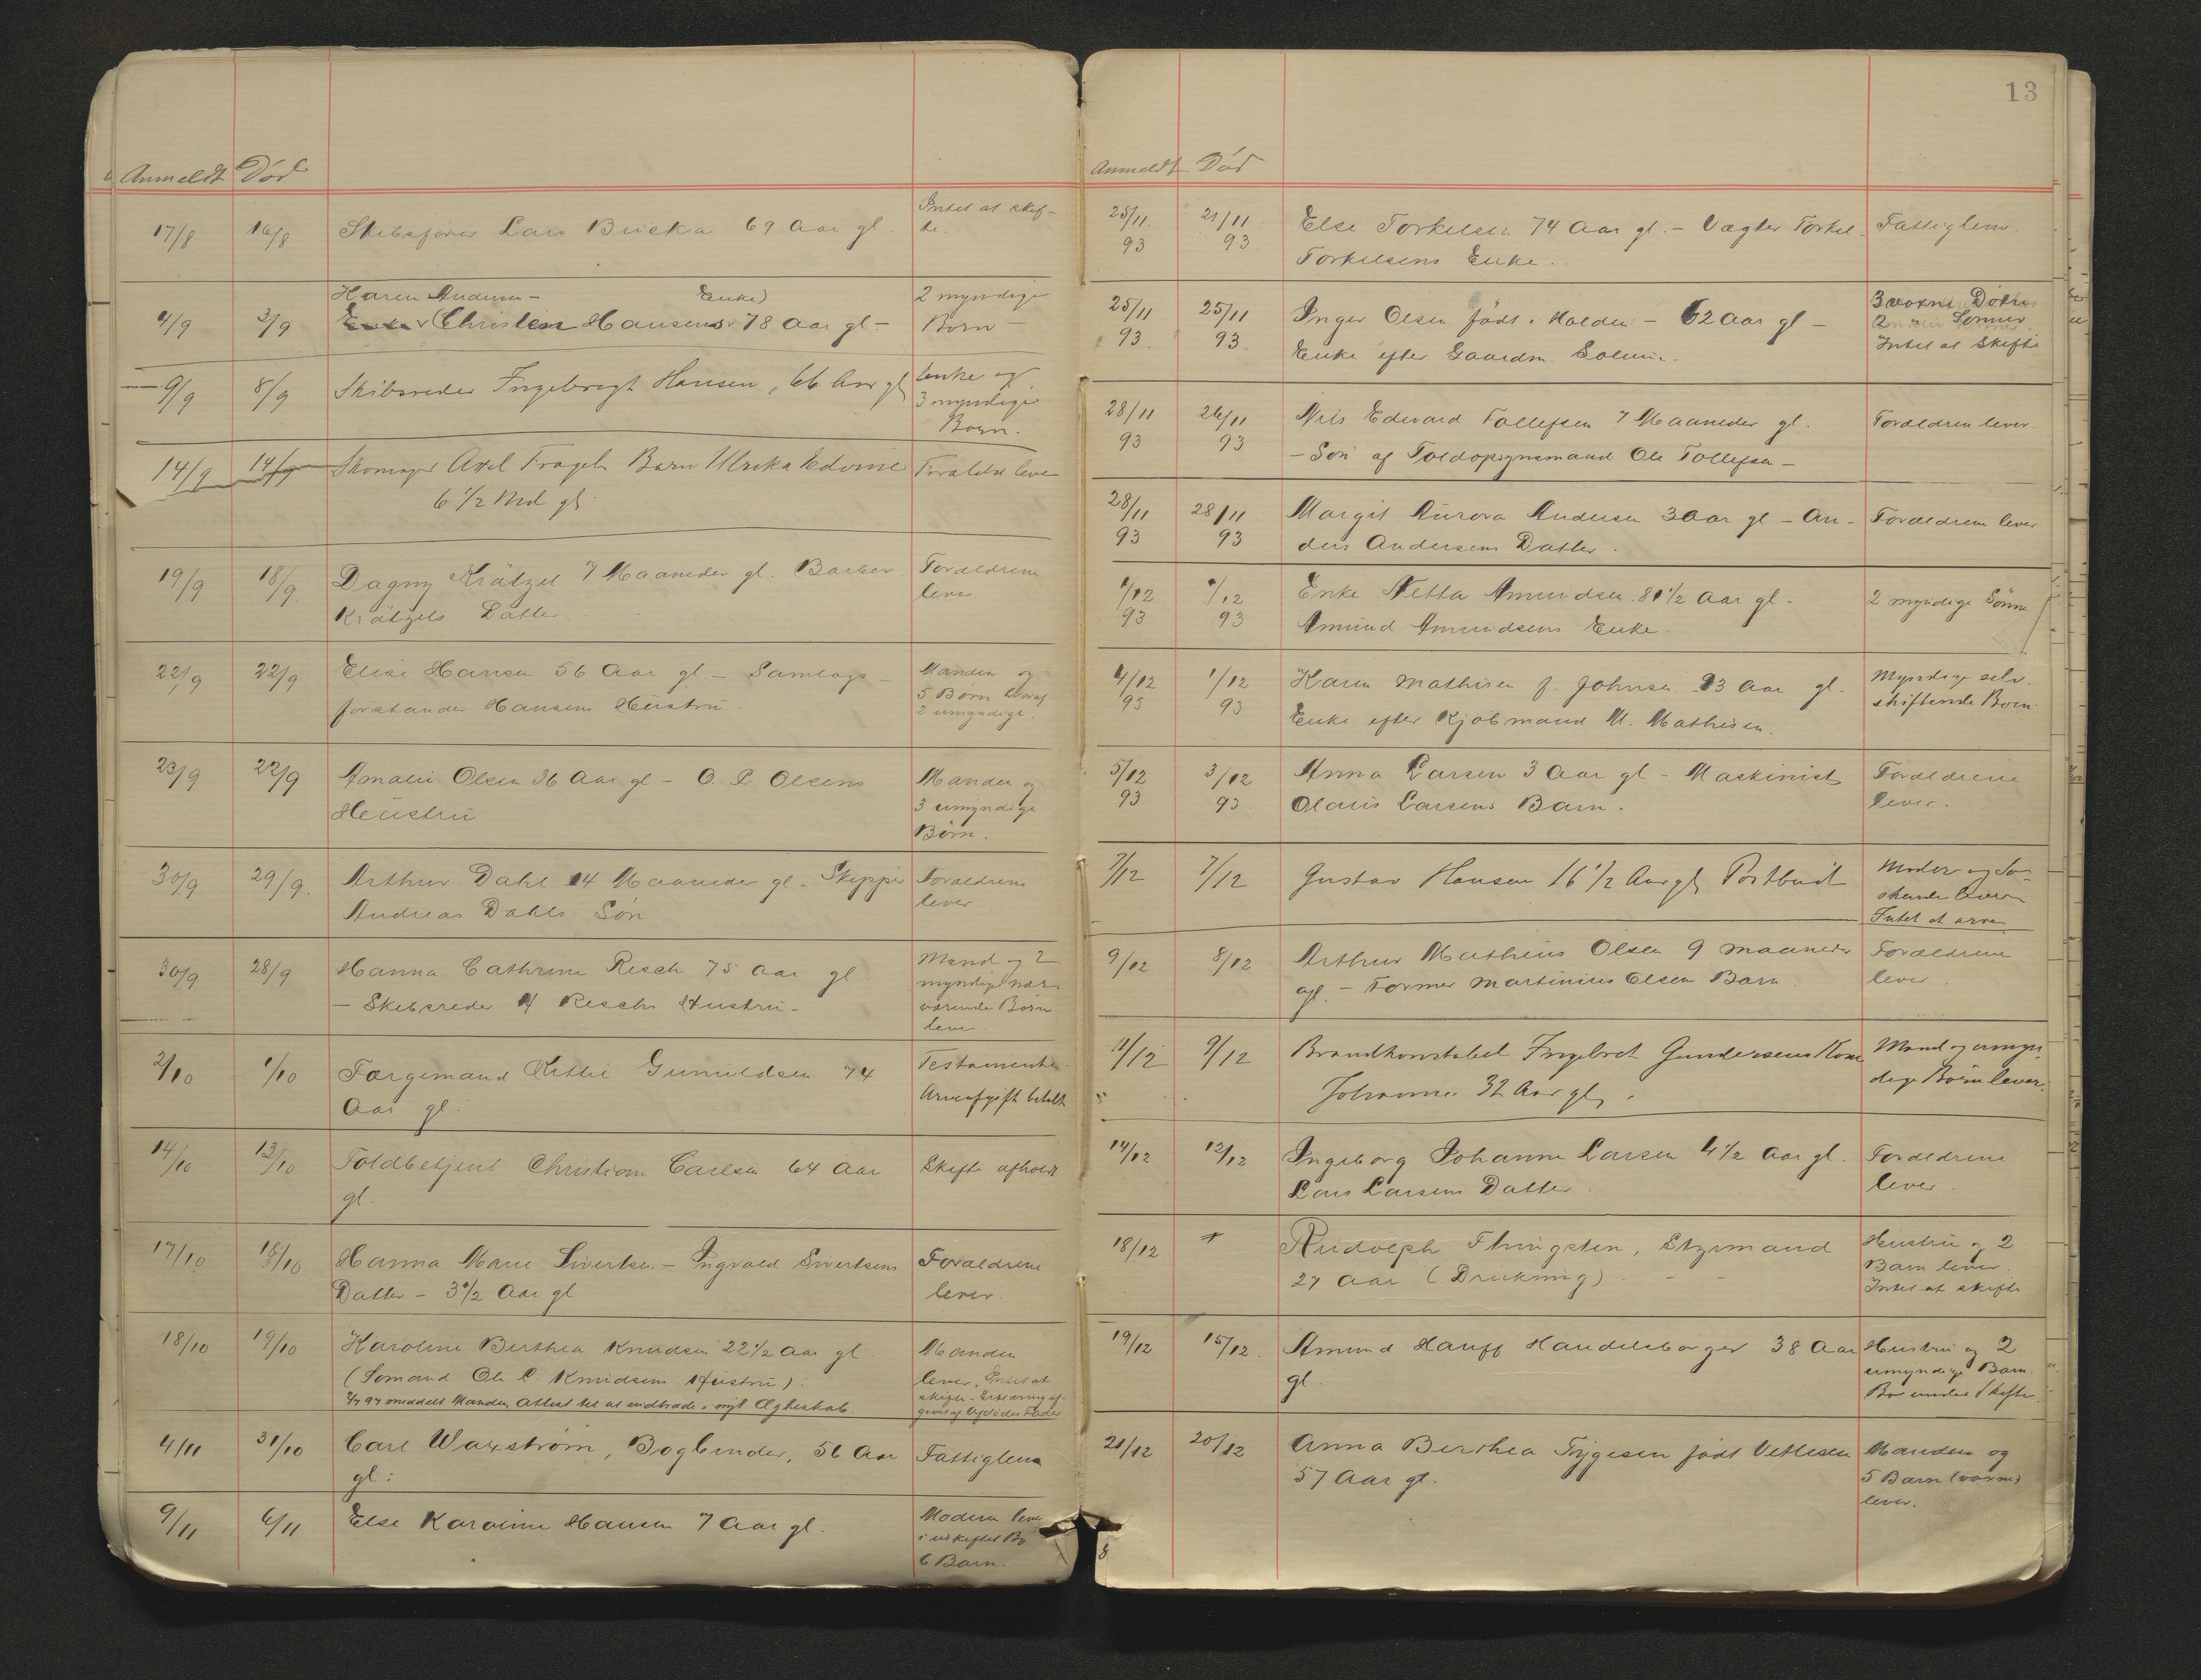 Anmeldt Död
17/8 16/8 Skibsfører Lars Bricka 69 Aar gl. Intet at skif-
te.
Karen Andersen - Enke)
4/9 3/9 (Christen Hansens 78 Aar gl - 2 myndige
Børn -
9/9 8/9 Skibsreder Ingebregt Hansen, 66 Aar gl Enke og
3 myndige
Børn.
14/9 14/9 Skomager Axel Fragels Barn Ulrika Edvine Forældre leve
6 1/2 Md gl.
19/9 18/9 Dagny Krätzel 7 Maaneder gl. Barber Forældrene
Krätzels Datter lever
22/9 22/9 Elise Hansen 56 Aar gl. - Samlags- Manden og
forstander Hansens Hüstrü. 5 Børn hvoraf
2 umyndige.
23/9 22/9 Amalie Olsen 36 Aar gl - O P Olsens Manden og
Hüstrü 3 umyndige
Børn.
30/9 29/9. Arthur Dahl 14 Maaneder gl. Skipper Forældrene
Andreas Dahls Søn lever
30/9 28/9 Hanna Cathrine Resch 75 Aar gl Mand og 2
- Skibsreder Reschs Hustrü - myndige nær-
værende Børn
leve
2/10 1/10 Færgemand Kittil Gunuldsen 74 Testamente
Aar gl. Arveafgift betalt
14/10 13/10 Toldbetjent Christian Carlsen 64 Aar Skifte afholdt
gl.
17/10 18/10 Hanna Marie Sivertsen - Ingvald Sivertsens Forældrene
Datter - 3 1/2 Aar gl lever.
18/10 19/10 Karoline Berthea Knudsen 22 1/2 Aar gl. Manden
(Sømand Ole C. Knudsens Hüstrü). lever. Intet at
skifte - Erklæring af-
2/7 97 meddelt Manden Attest til at indtræde i nyt Ægteskab. givet af Afdødes Fader
4/11 31/10 Carl Waxstrøm, Bogbinder, 56 Aar Fattiglem
gl:
9/11 6/11 Else Karoline Hansen 7 Aar gl. Moderen lever
i uskiftet Bo
6 Barn.
13
Anmeldt Död
25/11 93 21/11 93 Else Torkelsen 74 Aar gl. - Vægter Torkel Fattiglem.
Torkelsens Enke.
25/11 93. 25/11 93. Inger Olsen født i Holden - 62 Aar gl - 3 voxne Døtre
2 Sønner
Enke efter Gaardm. Intet at Skifte
28/11 93 26/11 93 Nils Edvard Tollefsen 7 Maaneder gl. Forældren lever.
- Søn af Toldopsynsmand Ole Tollefsen -
28/11 93 28/11 93 Margit Aurora Andersen 3 Aar gl - An- Forældrene lever
ders Andersens Datter.
1/12 93 1/12 93 Enke Netta Amundsen 81 1/2 Aar gl - 2 myndige Sønner
Amund Amundsens Enke.
4/12 93 1/12 93 Karen Mathisen f. Johnsen 83 Aar gl. Myndige selv-
Enke efter Kjøbmand M. Mathisen. skiftende Børn.
5/12 93 3/12 93. Anna Larsen 3 Aar gl - Maskinist Forældrene
Olaus Larsens Barn. lever.
7/12 7/12 Gustav Hansen 16 1/2 Aar gl, Postbud Moder og Sø-
skende lever
Intet at arve
9/12 8/12 Arthur Mathius Olsen 9 maaneder Forældrene
gl. - Former Martinius Olsens Barn. lever
11/12 9/12 Brandkonstabel Ingebret Gundersens Kone Mand og umyn-
Johanne 32 Aar gl. dige Børn lever.
14/12 12/12 Ingeborg Johanne Larsen 4 1/2 Aar gl. Forældrene
Lars Larsens Datter lever.
18/12 Rudolph Thingsten, Styrmand Hustrü og 2
27 Aar (Drukning) - - Barn lever.
Intet at skifte
19/12 15/12. Amund Hauff Handelsborger 38 Aar Hustru og 2
gl. umyndige Barn.
21/12 20/12 Anna Berthea Trygesen født Vetlesen Manden og
57 Aar gl. 5 Barn (voxne)
lever.
8